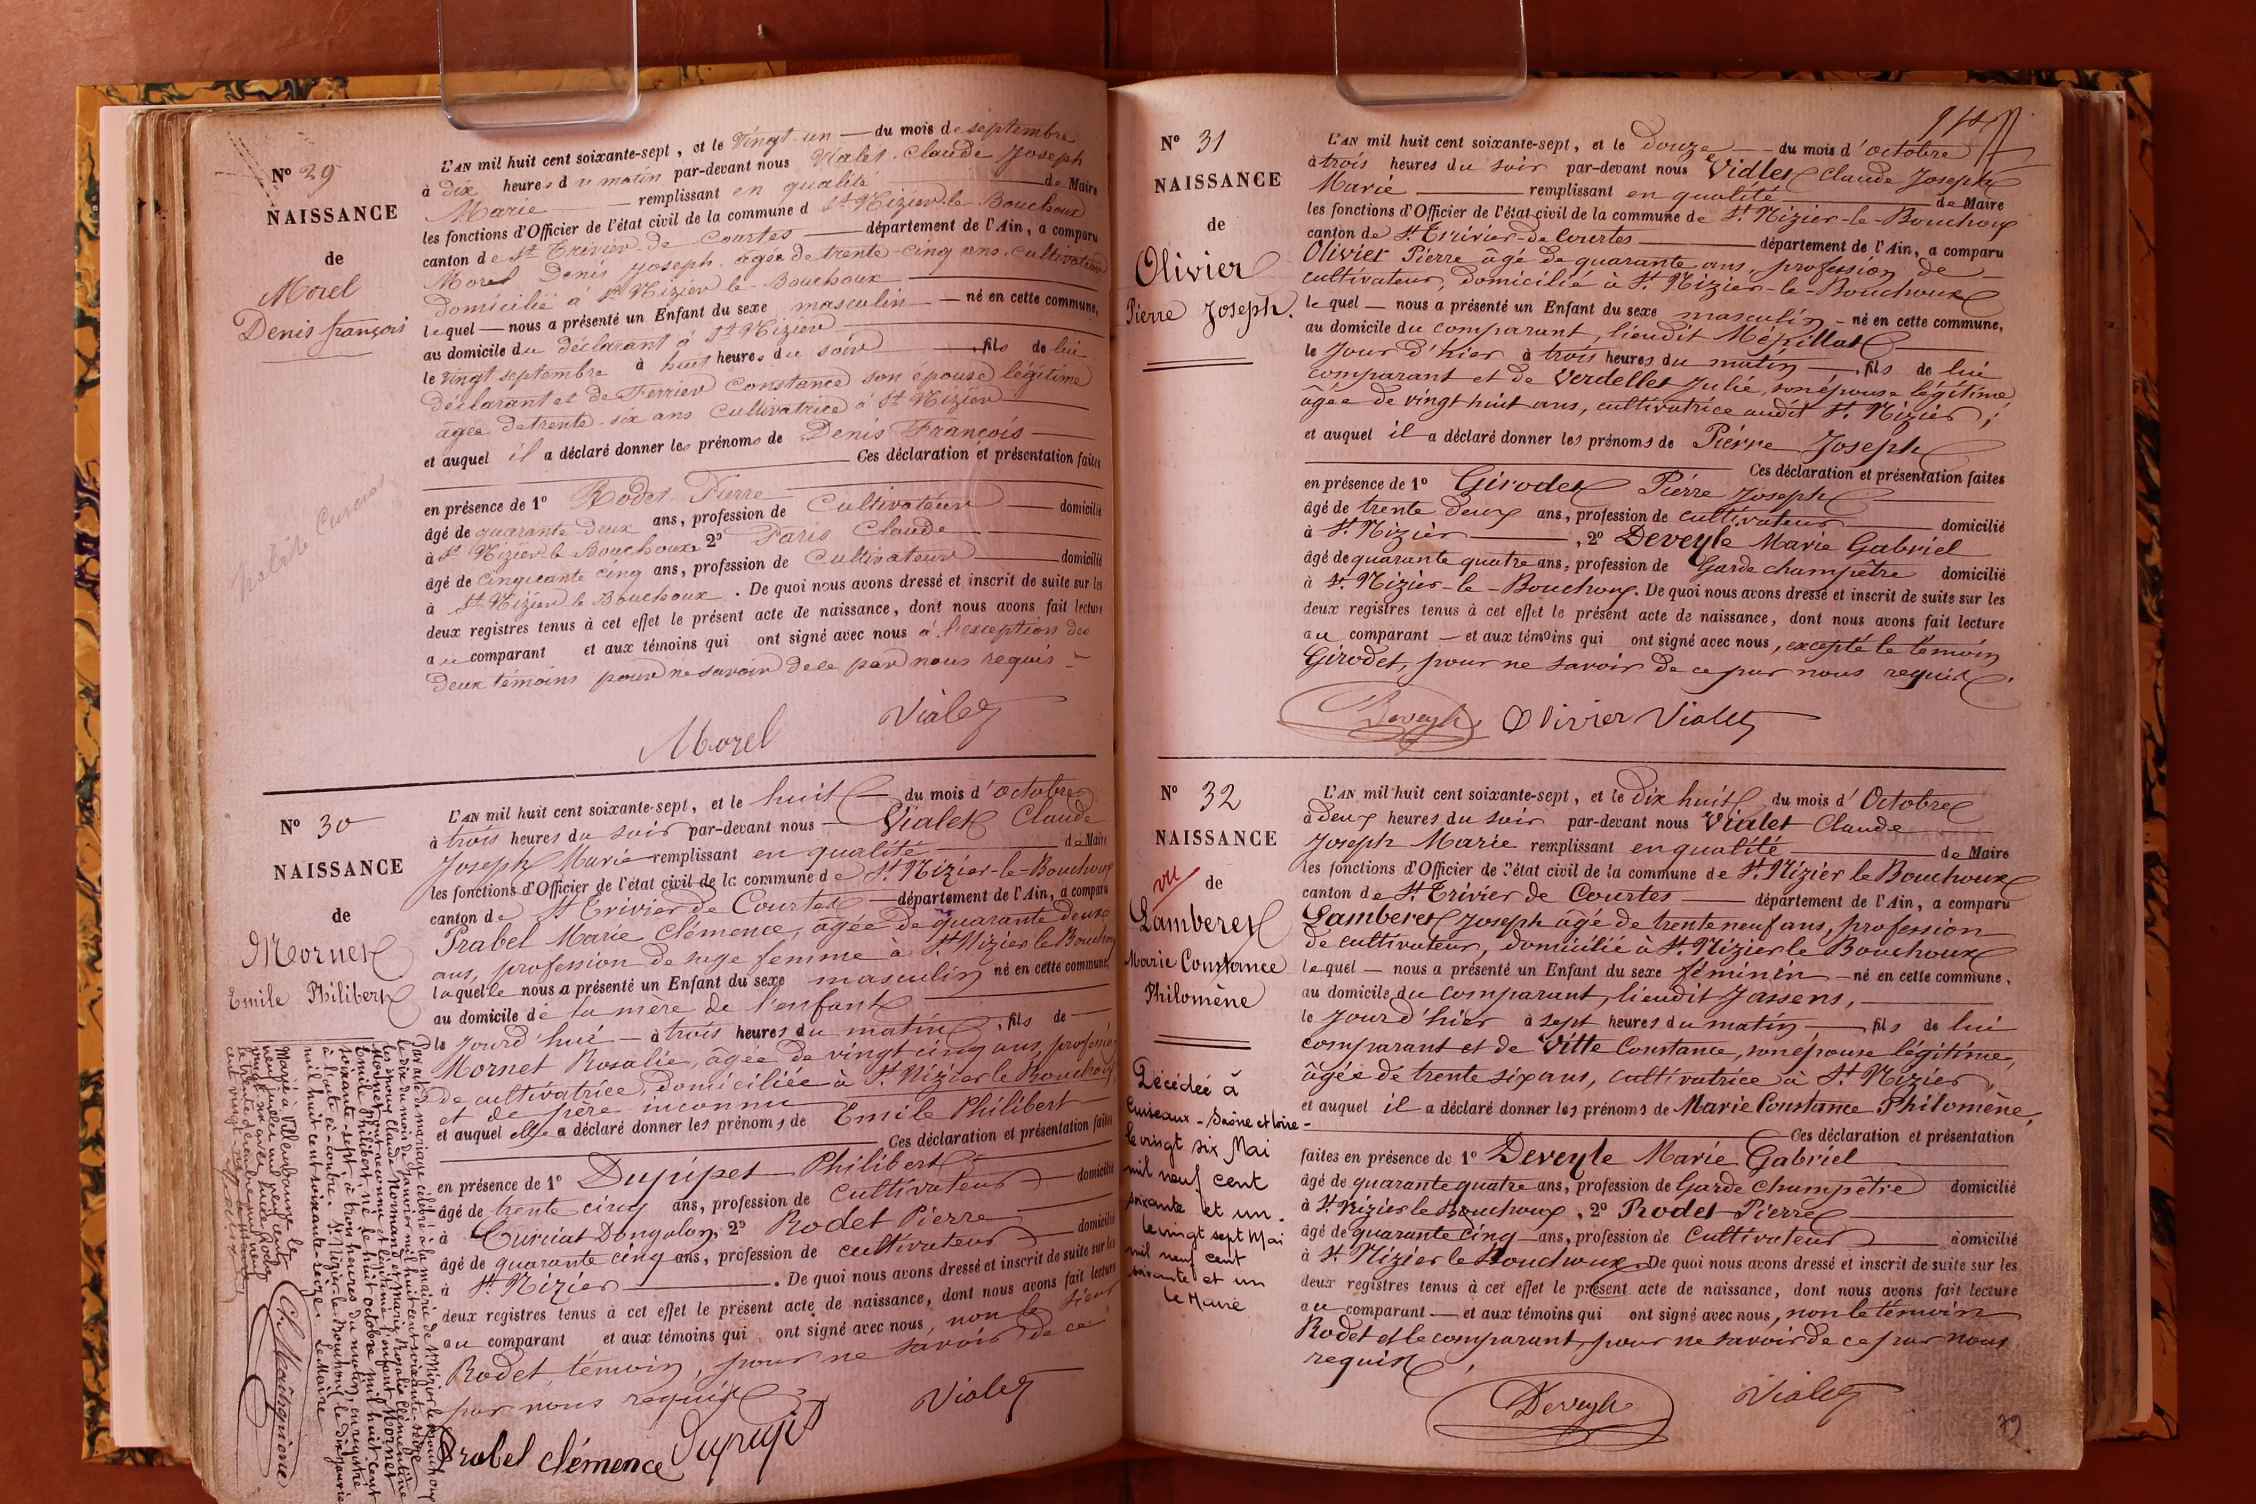 N° 29
NAISSANCE
de
Morel
Denis françois
L'AN mil huit cent soixante-sept, et le Vingt-un — du mois de septembre
à dix heures du matin par-devant nous Vialet Claude Joseph
Marie — remplissant en qualité — de Maire
les fonctions d'Officier de l'état civil de la commune d St Nizier-le-Bouchoux
canton de St Trivier de Courtes — département de l'Ain, a comparu
Morel Denis Joseph âgée de trente-cinq ans cultivateur
domicilié à St Nizier le Bouchoux
lequel — nous a présenté un Enfant du sexe masculin — né en cette commune,
au domicile du déclarant à St Nizier
le vingt septembre à huit heures du soir —, fils de lui
déclarant et de Ferrier Constance son épouse légitime
âgée de trente-six ans cultivatrice à St Nizier
et auquel il a déclaré donner les prénoms de Denis François
Ces déclaration et présentation faites
en présence de 1° Rodet Pierre
âgé de quarante deux ans, profession de Cultivateur — domicilié
à St Nizier le Bouchoux 2° Paris Claude
âgé de cinquante cinq ans, profession de Cultivateur — domicilié
à St Nizier le Bouchoux. De quoi nous avons dressé et inscrit de suite sur les
deux registres tenus à cet effet le présent acte de naissance, dont nous avons fait lecture
au comparant et aux témoins qui ont signé avec nous à l'exception des
deux témoins pour ne savoir de ce par nous requis
Morel Vialet
N° 30
NAISSANCE
de
Mornet
Emile Philibert
L'AN mil huit cent soixante-sept, et le huit — du mois d'octobre
à trois heures du soir par-devant nous — Vialet Claude
Joseph Marie remplissant en qualité — de Maire
les fonctions d'Officier de l'état civil de la commune de St. Nizier-le-Bouchoux
canton de St Trivier de Courtes — département de l'Ain, a comparu
Prabel Marie Clémence, âgée de quarante deux
ans, profession de sage femme à St. Nizier le Bouchoux
laquelle nous a présenté un Enfant du sexe masculin né en cette commune,
au domicile de la mère de l'enfant
le jourd'hui — à trois heures du matin, fils de —
Mornet Rosalie, âgée de vingt cinq ans, profession
de cultivatrice, domiciliée à St. Nizier le Bouchoux
et de père inconnu
et auquel elle a déclaré donner les prénoms de Emile Philibert
Ces déclaration et présentation faites
en présence de 1° Dupupet Philibert
âgé de trente cinq ans, profession de cultivateur — domicilié
à Curciat Dongalon, 2° Rodet Pierre
âgé de quarante cinq ans, profession de cultivateur — domicilié
à St. Nizier —. De quoi nous avons dressé et inscrit de suite sur les
deux registres tenus à cet effet le présent acte de naissance, dont nous avons fait lecture
au comparant et aux témoins qui ont signé avec nous, non le sieur
Rodet, témoin, pour ne savoir de ce
par nous requis
Prabel clémence Vialet
Par acte de mariage célébré à la mairie de St. Nizier le Bouchoux
le dix du mois de janvier mil huit cent soixante-seize
les époux Claude Normand et Marie Rosalie Clémentine
Mornet ont reconnu et légitimé l'enfant Mornet
Emile Philibert, né le huit octobre mil huit cent
soixante-sept, à trois heures du matin, enregistré
à l'acte ci-contre. St. Nizier-le-Bouchoux, le dix janvier
mil huit cent soixante-seize. Le Maire
Marié à Villeurbanne le
N° 31
NAISSANCE
de
Olivier
Pierre Joseph.
L'AN mil huit cent soixante-sept, et le douze — du mois d'octobre
à trois heures du soir par-devant nous Vialet Claude Joseph
Marie — remplissant en qualité — de Maire
les fonctions d'Officier de l'état civil de la commune de St. Nizier-le-Bouchoux
canton de St. Trivier-de-Courtes — département de l'Ain, a comparu
Olivier Pierre âgé de quarante ans, profession de
cultivateur, domicilié à St. Nizier-le-Bouchoux
lequel — nous a présenté un Enfant du sexe masculin — né en cette commune,
au domicile du comparant, lieudit Mépillat
le jour d'hier à trois heures du matin —, fils de lui
comparant et de Verdellet Julie, son épouse légitime
âgée de vingt huit ans, cultivatrice audit St. Nizier;
et auquel il a déclaré donner les prénoms de Pierre Joseph
Ces déclaration et présentation faites
en présence de 1° Girodet Pierre Joseph
âgé de trente deux ans, profession de cultivateur — domicilié
à St. Nizier —, 2° Deveyle Marie Gabriel
âgé de quarante quatre ans, profession de Garde champêtre domicilié
à St. Nizier-le-Bouchoux. De quoi nous avons dressé et inscrit de suite sur les
deux registres tenus à cet effet le présent acte de naissance, dont nous avons fait lecture
au comparant — et aux témoins qui ont signé avec nous, excepté le témoin
Girodet, pour ne savoir de ce par nous requis.
Deveyle Olivier Vialet
N° 32
NAISSANCE
vu
de
Lamberet
Marie Constance
Philomène
Décédée à
Cuiseaux - Saône et Loire -
le vingt six Mai
mil neuf cent
soixante et un.
le vingt sept Mai
mil neuf cent
soixante et un
Le Maire
L'AN mil huit cent soixante-sept, et le dix huit du mois d'Octobre
à deux heures du soir par-devant nous Vialet Claude
Joseph Marie remplissant en qualité — de Maire
les fonctions d'Officier de l'état civil de la commune de St. Nizier le Bouchoux
canton de St. Trivier de Courtes — département de l'Ain, a comparu
Lamberet Joseph âgé de trente neuf ans, profession
de cultivateur, domicilié à St. Nizier le Bouchoux
lequel — nous a présenté un Enfant du sexe féminin — né en cette commune,
au domicile du comparant, lieudit Jassens,
le jour d'hier à sept heures du matin, —, fils de lui
comparant et de Vitte Constance, son épouse légitime,
âgée de trente six ans, cultivatrice à St. Nizier,
et auquel il a déclaré donner les prénoms de Marie Constance Philomène,
Ces déclaration et présentation
faites en présence de 1° Deveyle Marie Gabriel
âgé de quarante quatre ans, profession de Garde Champêtre domicilié
à St. Nizier le Bouchoux, 2° Rodet Pierre
âgé de quarante cinq — ans, profession de Cultivateur — domicilié
à St. Nizier le Bouchoux. De quoi nous avons dressé et inscrit de suite sur les
deux registres tenus à cet effet le présent acte de naissance, dont nous avons fait lecture
au comparant — et aux témoins qui ont signé avec nous, non le témoin
Rodet et le comparant, pour ne savoir de ce par nous
requis
Deveyle Vialet
79